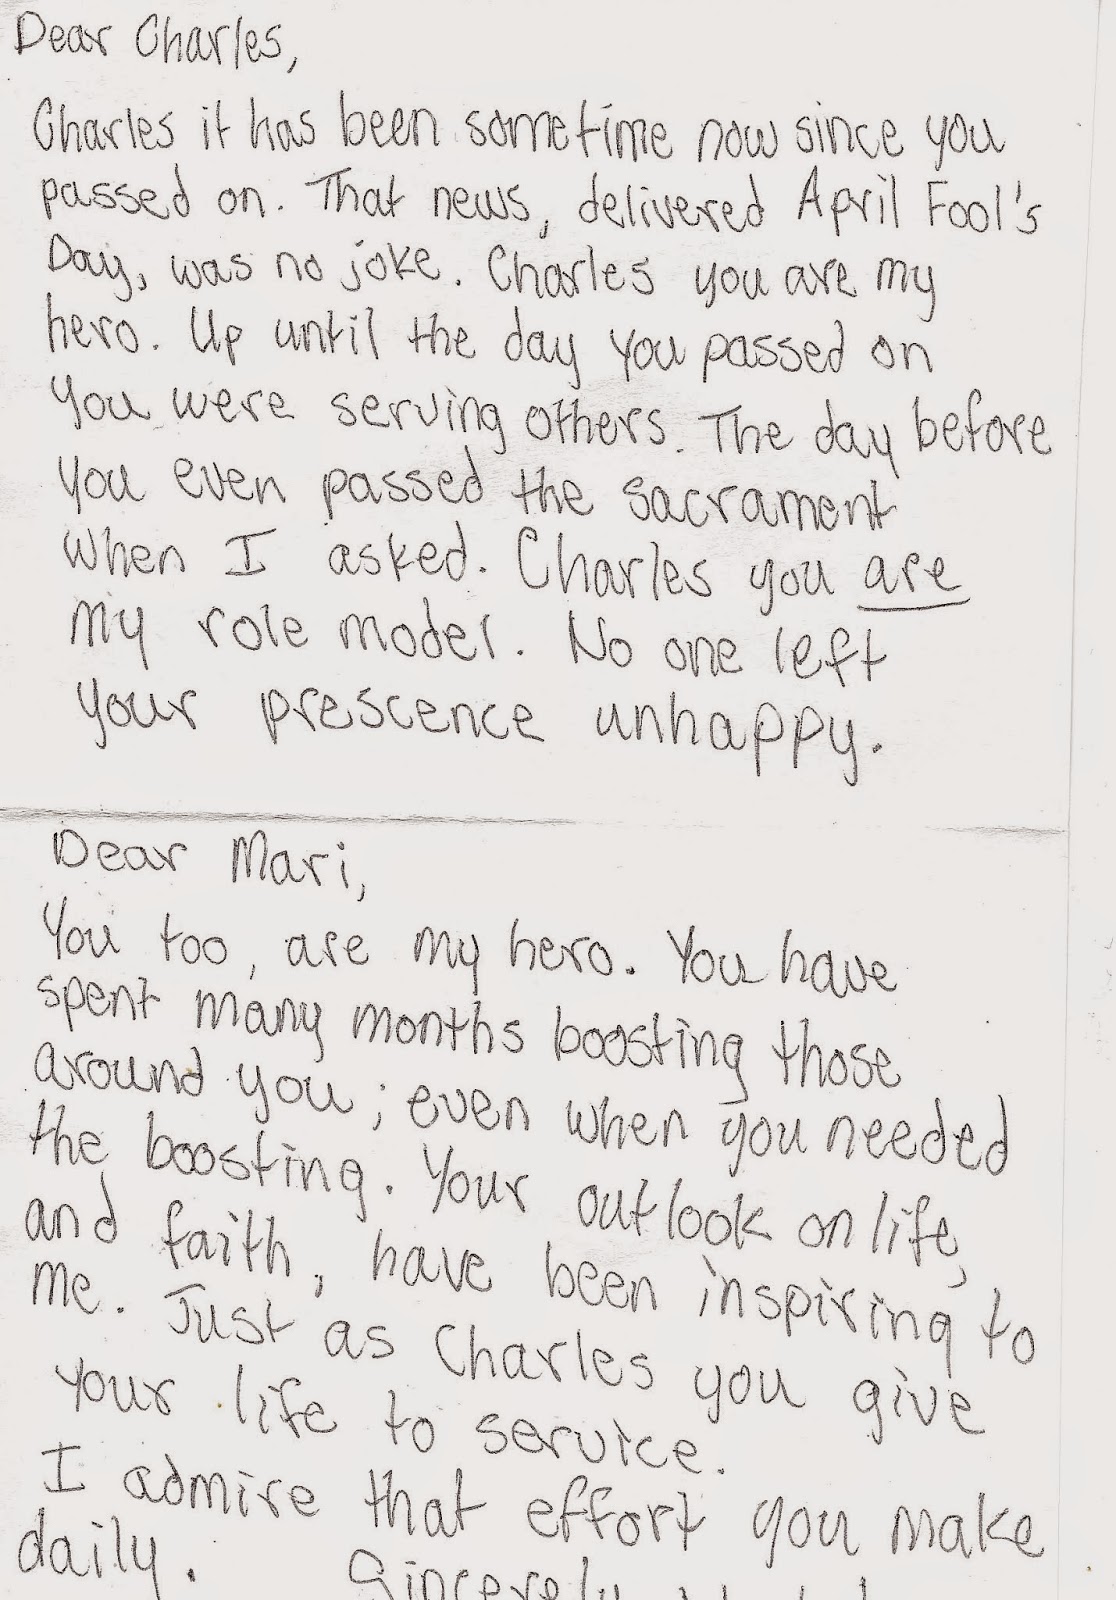 Dear Charles,
Charles it has been sometime now since you
passed on. That news, delivered April Fool's
Day, was no joke. Charles you are my
hero. Up until the day you passed on
you were serving others. The day before
you even passed the sacrament
when I asked. Charles you are
my role model. No one left
your prescence unhappy.
Dear Mari,
You too, are my hero. You have
spent many months boosting those
around you; even when you needed
the boosting. Your outlook on life,
and faith, have been inspiring to
me. Just as Charles you give
your life to service.
I admire that effort you make
daily.
Sincerely